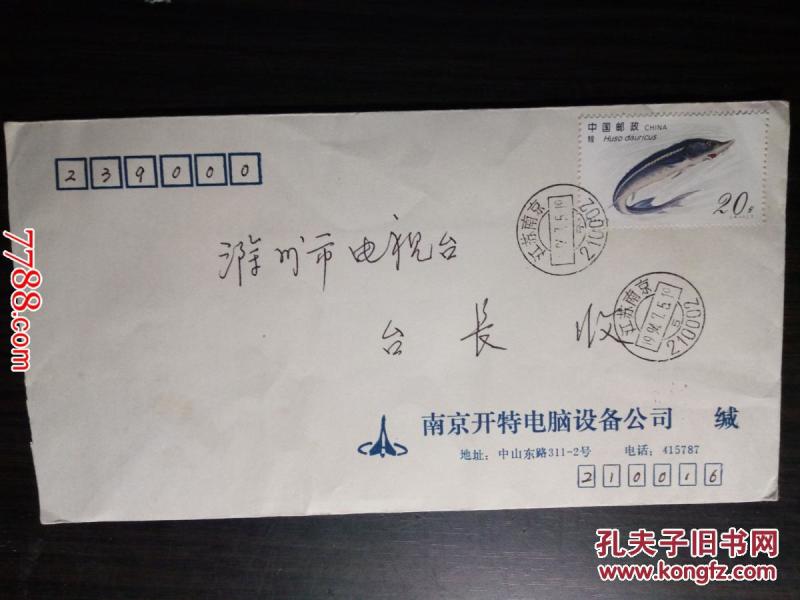 239000
中国邮政 CHINA
鳇 Huso dauricus
20分
江苏南京
210002
滁州市电视台
台 長 收
江苏南京
1994.7.5.19
5
210002
南京开特电脑设备公司 缄
地址：中山东路311-2号 电话：415787
210016
7788.com
孔夫子旧书网
www.kongfz.com